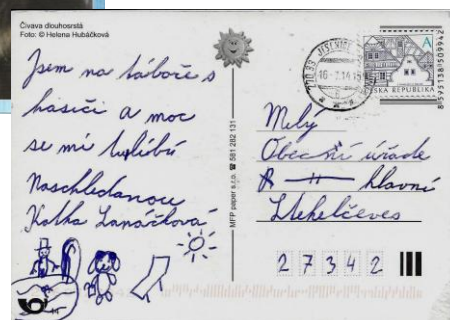 Čivava dlouhosrstá
Foto: © Helena Hubáčková
Jsem na táboře s
hasiči a moc
se mi tu líbí
Naschledanou
Katka Lanáčková
MFP paper s.r.o. ☎ 581 282 131
JISTEBNICE
16 -7.14 15
A
ČESKÁ REPUBLIKA
8595138509942
Milý
Obecní úřade
hlavní
Stehelčeves
2 7 3 4 2